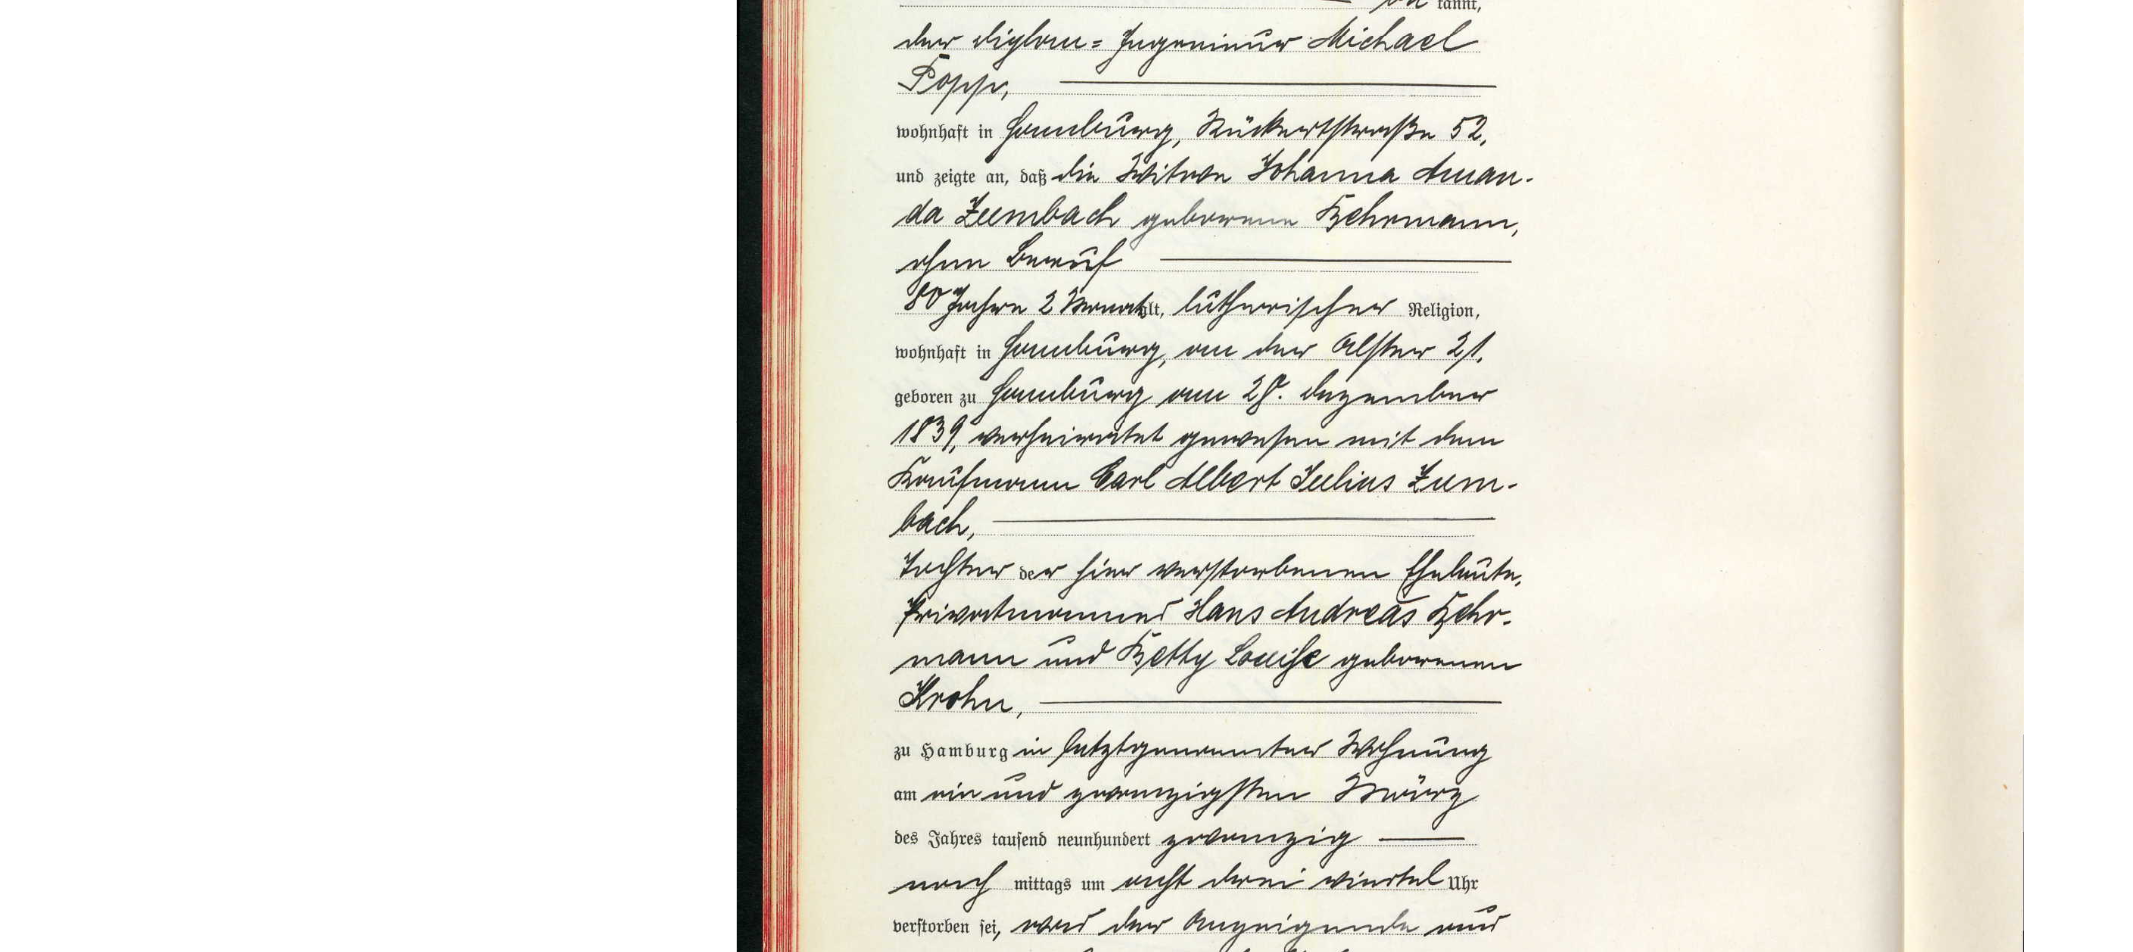 kannt,
der Diplom=Ingenieur Michael
Popp,
wohnhaft in Hamburg, Rückertstraße 52,
und zeigte an, daß die Witwe Johanna Aman-
da Zumbach geborene Kehrmann,
ohne Beruf
80 Jahre 2 Monate alt, lutherischer Religion,
wohnhaft in Hamburg, an der Alster 21,
geboren zu Hamburg am 28. Dezember
1839, verheiratet gewesen mit dem
Kaufmann Carl Albert Julius Zum-
bach,
Tochter der hier verstorbenen Eheleute,
Privatmannes Hans Andreas Kehr-
mann und Betty Louise geborenen
Krohn,
zu Hamburg in letztgenannter Wohnung
am ein und zwanzigsten März
des Jahres tausend neunhundert zwanzig
nach mittags um acht drei viertel Uhr
verstorben sei, was der Anzeigende aus